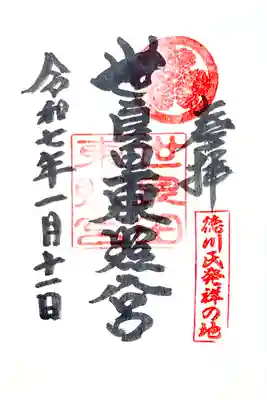 奉拝
徳川氏発祥の地
世良田東照宮
世良田
東照宮
令和七年一月十一日